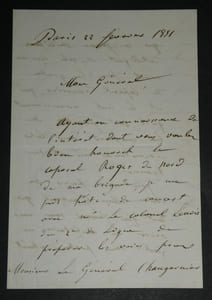 Paris 22 fevrier 1851
Mon Général,
Ayant eu connaissance de
l'intérêt dont vous voulez
bien honorer le
caporal Roger du Nord
de ma brigade, je me
suis hâté de
avec Mr le colonel
du de Ligne de
le pour
Monsieur Le Général Changarnier